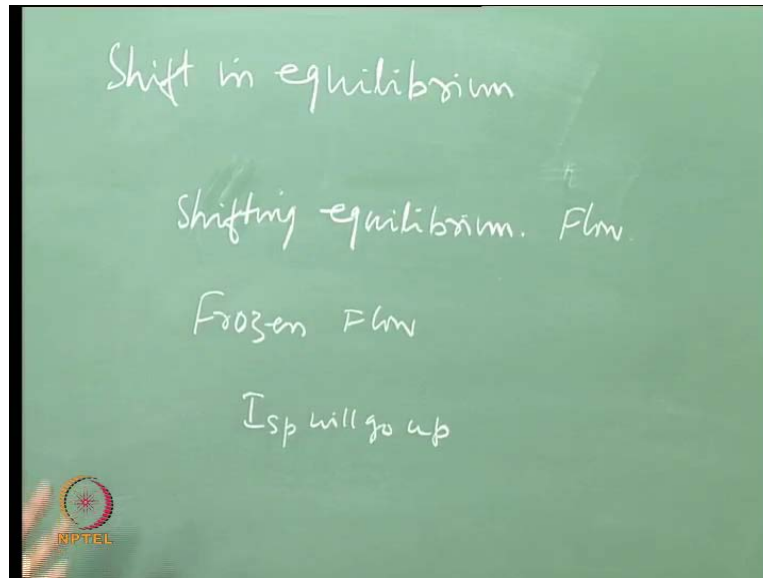 Shift in equilibrium
Shifting equilibrium. Flow.
Frozen Flow
Isp will go up
NPTEL